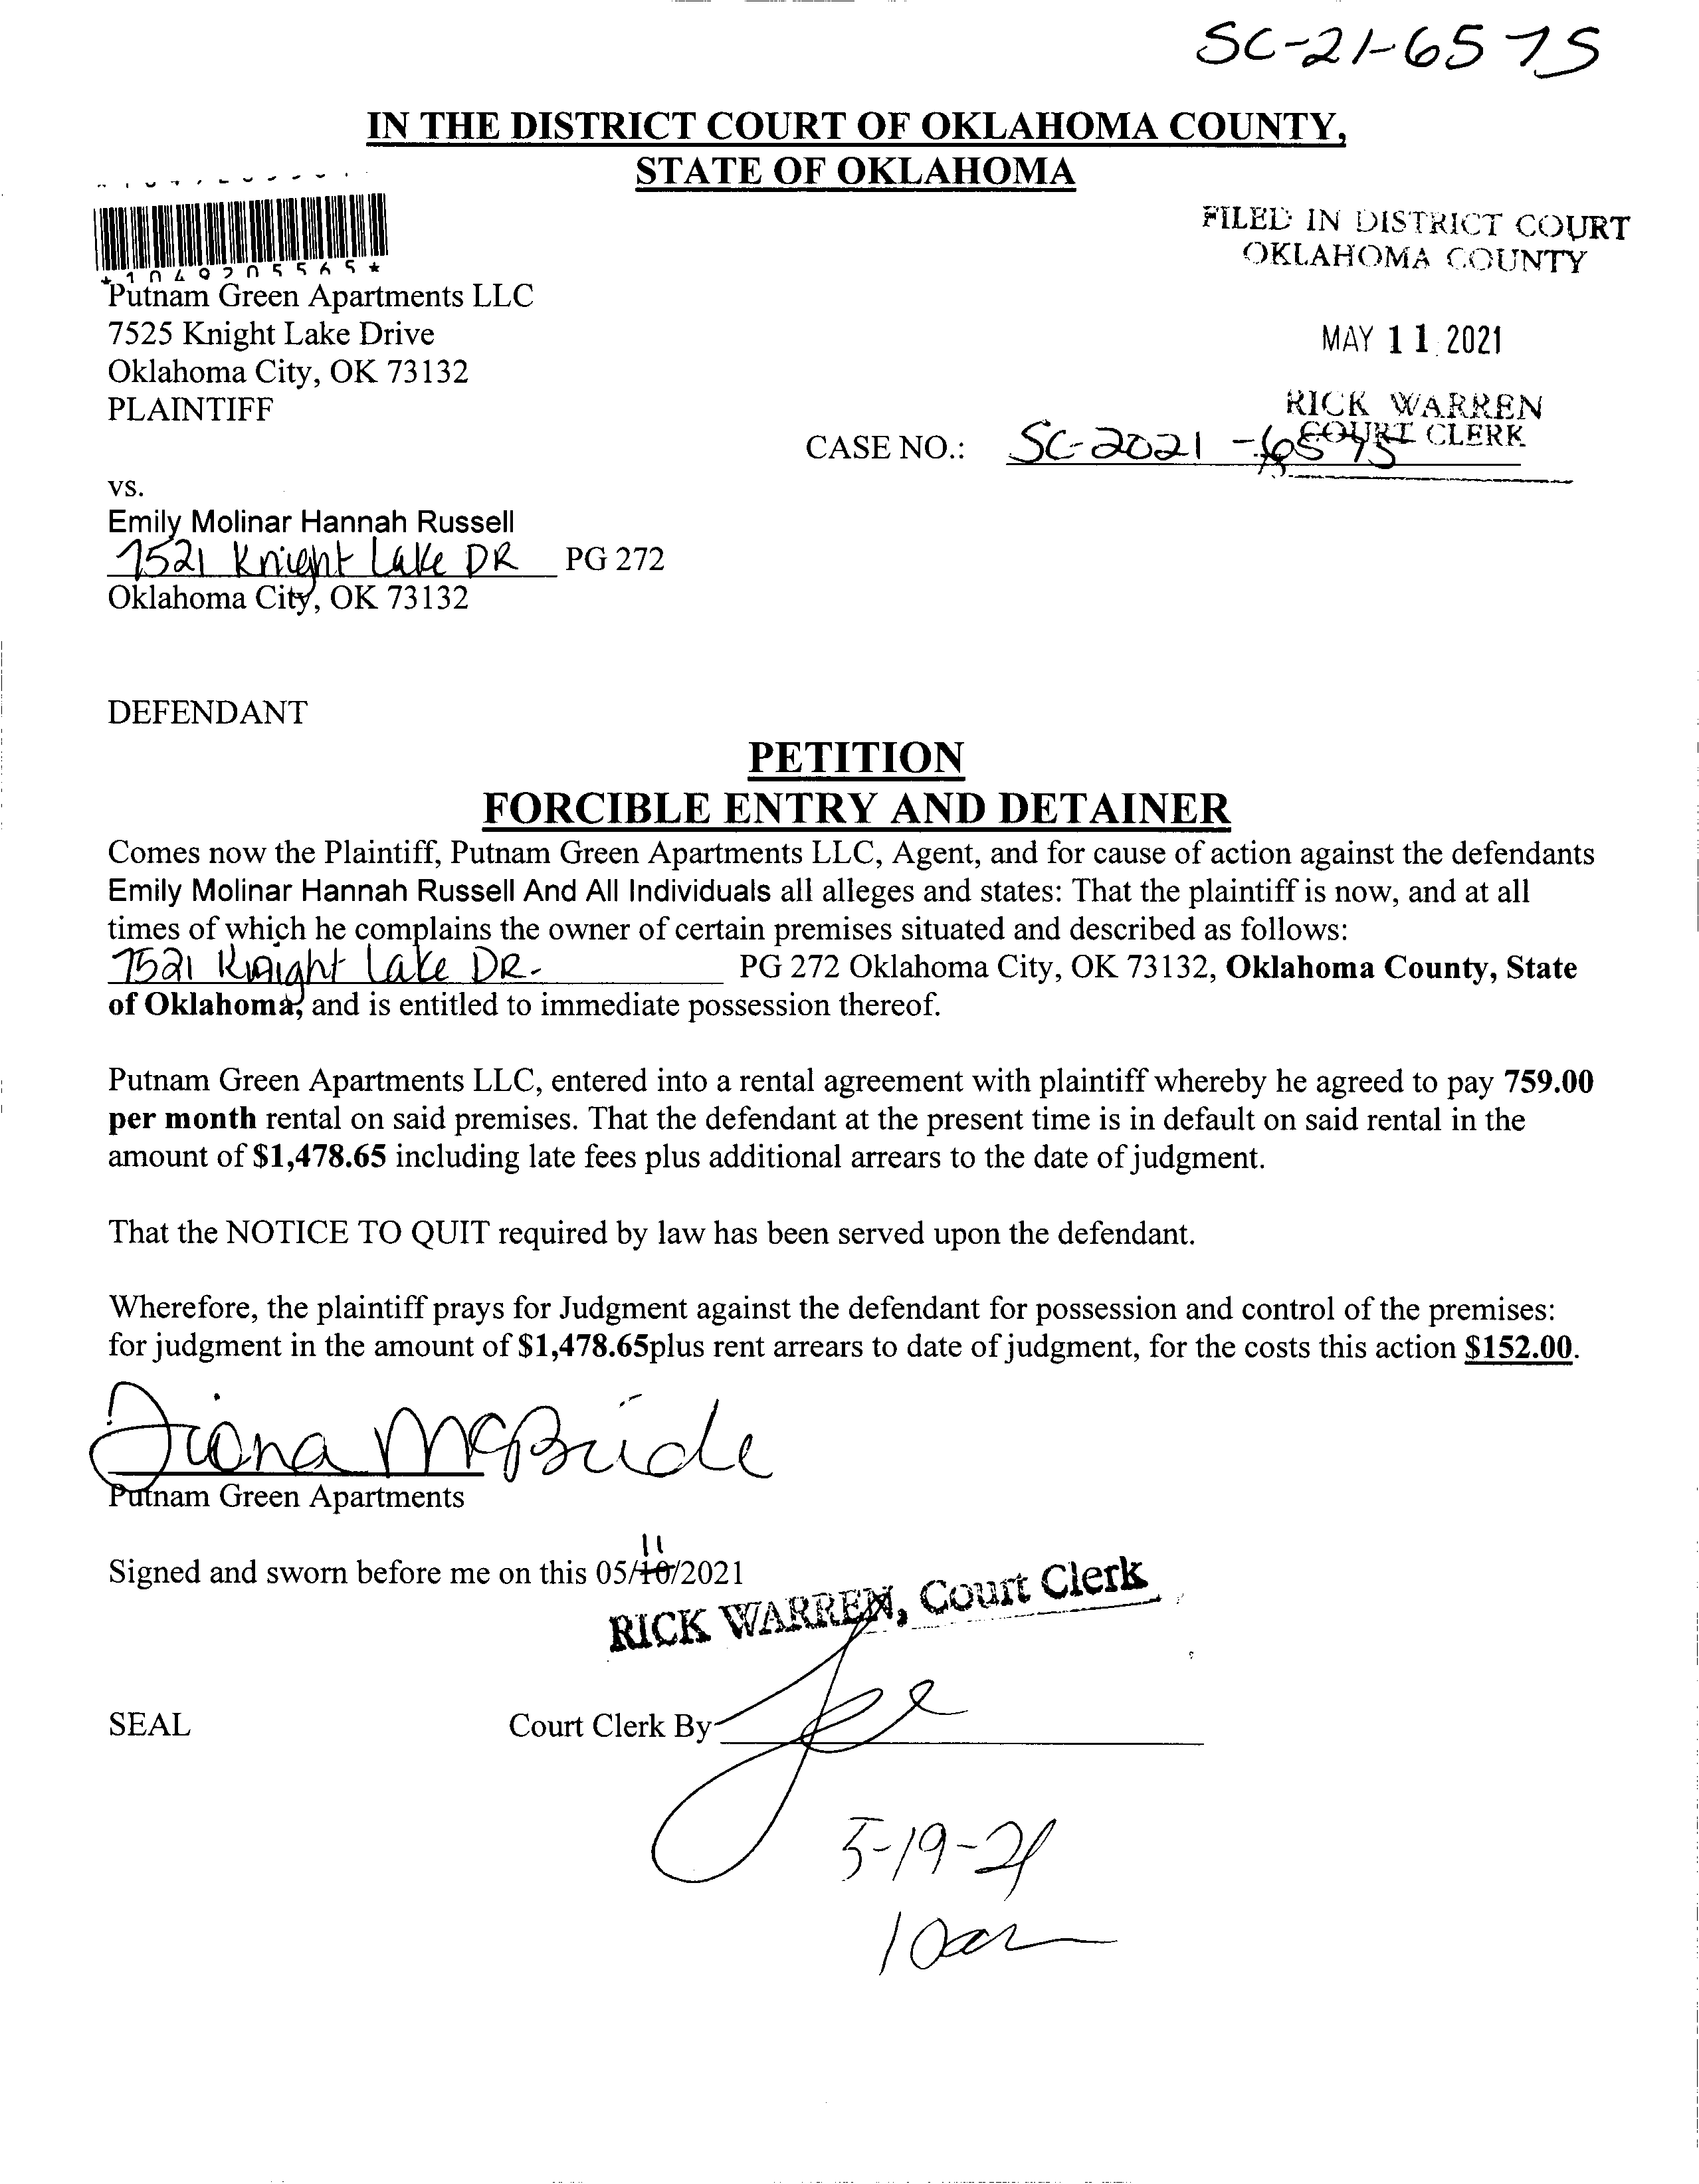 SC-21-6575
IN THE DISTRICT COURT OF OKLAHOMA COUNTY,
STATE OF OKLAHOMA
FILED IN DISTRICT COURT
OKLAHOMA COUNTY
*1049205565*
Putnam Green Apartments LLC
7525 Knight Lake Drive
MAY 11 2021
Oklahoma City, OK 73132
PLAINTIFF
RICK WARREN
COURT CLERK
CASE NO.: SC-2021-6575
vs.
Emily Molinar Hannah Russell
7521 Knight Lake DR PG 272
Oklahoma City, OK 73132
DEFENDANT
PETITION
FORCIBLE ENTRY AND DETAINER
Comes now the Plaintiff, Putnam Green Apartments LLC, Agent, and for cause of action against the defendants
Emily Molinar Hannah Russell And All Individuals all alleges and states: That the plaintiff is now, and at all
times of which he complains the owner of certain premises situated and described as follows:
7521 Knight Lake DR- PG 272 Oklahoma City, OK 73132, Oklahoma County, State
of Oklahoma, and is entitled to immediate possession thereof.
Putnam Green Apartments LLC, entered into a rental agreement with plaintiff whereby he agreed to pay 759.00
per month rental on said premises. That the defendant at the present time is in default on said rental in the
amount of $1,478.65 including late fees plus additional arrears to the date of judgment.
That the NOTICE TO QUIT required by law has been served upon the defendant.
Wherefore, the plaintiff prays for Judgment against the defendant for possession and control of the premises:
for judgment in the amount of $1,478.65plus rent arrears to date of judgment, for the costs this action $152.00.
Diona McBride
Putnam Green Apartments
11
Signed and sworn before me on this 05/10/2021
RICK WARREN, Court Clerk
SEAL Court Clerk By
5-19-21
10am